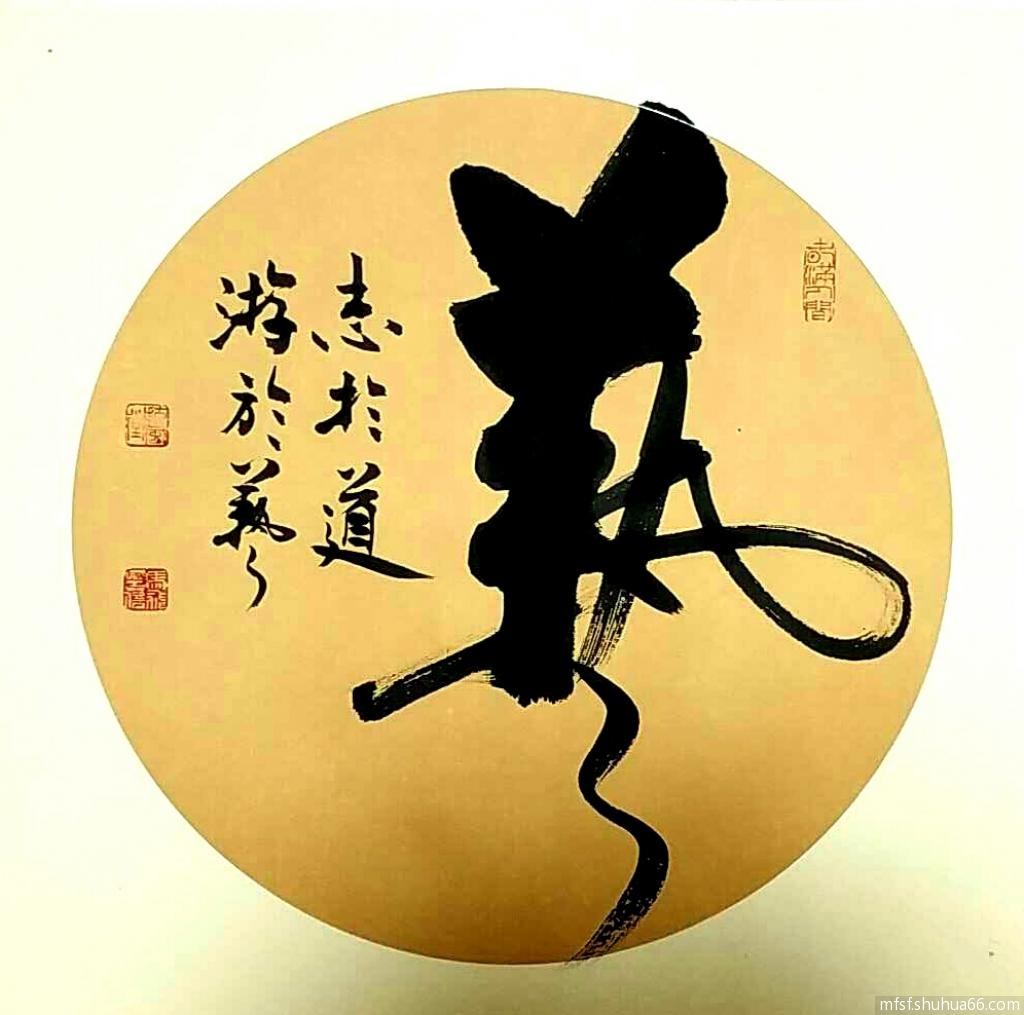 藝
志於道
游於藝
mfsf.shuhua66.com